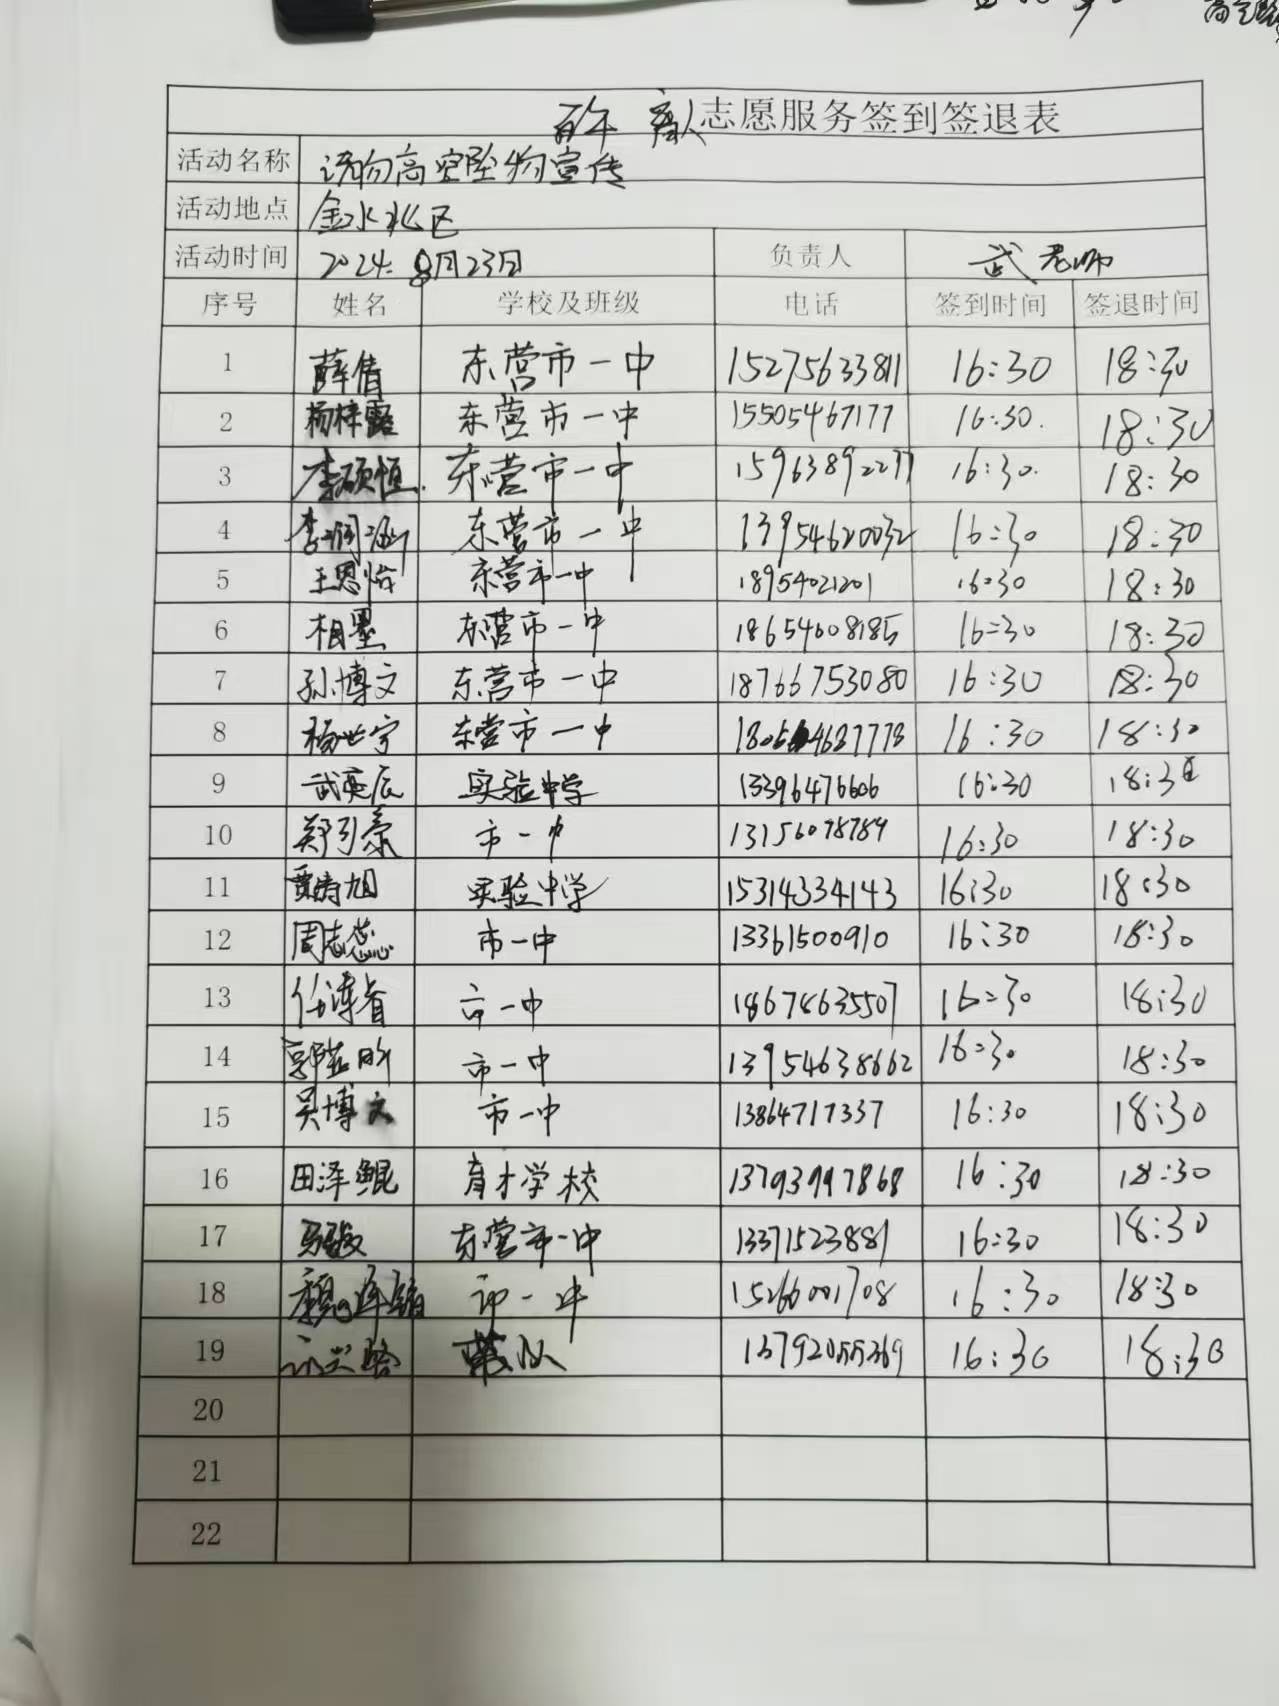 志愿服务签到签退表
活动名称 请勿高空坠物宣传
活动地点 金水北区
活动时间 2024.8月23日 负责人 武老师
序号 姓名 学校及班级 电话 签到时间 签退时间
1 薛倩 东营市一中 15275633811 16:30 18:30
2 杨梓露 东营市一中 15505467177 16:30. 18:30
3 李硕恒. 东营市一中 15963892277 16:30. 18:30
4 李润涵 东营市一中 13954620032 16:30 18:30
5 王恩怡 东营市一中 18954021201 16:30 18:30
6 相墨 东营市一中 18654608185 16:30 18:30
7 孙博文 东营市一中 18766753080 16:30 18:30
8 杨世宁 东营市一中 16:30 18:30
9 武奕辰 实验中学 13396476606 16:30 18:30
10 郑引泰 市一中 13156098789 16:30 18:30
11 旭 实验中学 15314334143 16:30 18:30
12 周志蕊 市一中 13361500910 16:30 18:30
13 任 市一中 18678635507 16:30 18:30
14 郭 市一中 13954638662 16:30 18:30
15 吴博文 市一中 13864717337 16:30 18:30
16 田泽鲲 育才学校 13793997868 16:30 18:30
17 马骏 东营市一中 13371523881 16:30 18:30
18 市一中 15266001708 16:30 18:30
19 带队 13792055369 16:30 18:30
20
21
22